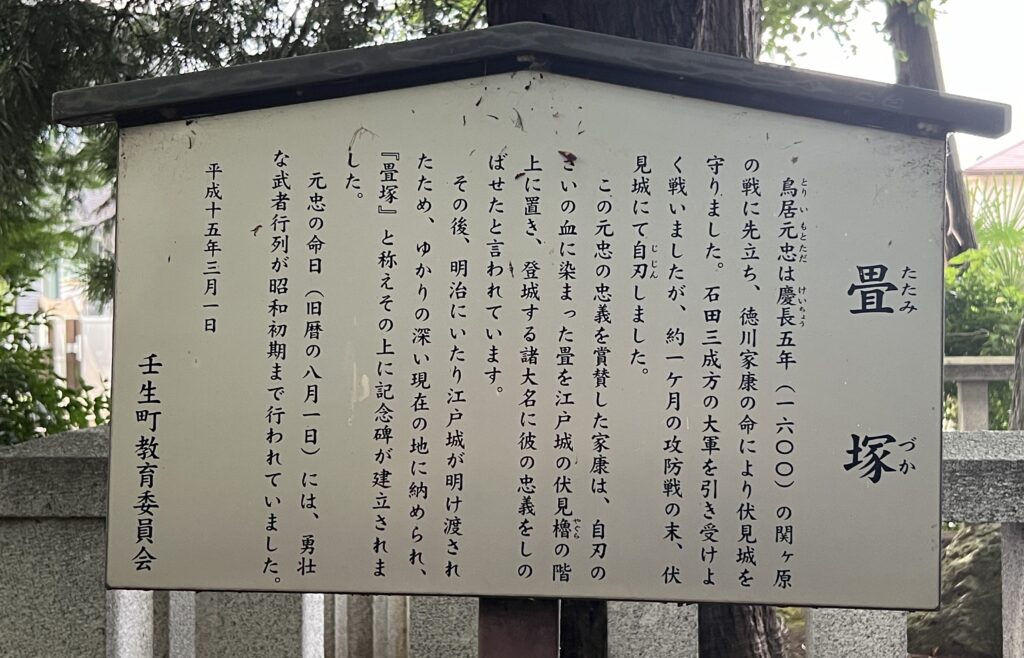 畳塚
たたみづか
鳥居元忠は慶長五年（一六〇〇）の関ヶ原
とりいもとただ
けいちょう
の戦に先立ち、徳川家康の命により伏見城を
守りました。石田三成方の大軍を引き受けよ
く戦いましたが、約一ヶ月の攻防戦の末、伏
見城にて自刃しました。
じじん
この元忠の忠義を賞賛した家康は、自刃の
さいの血に染まった畳を江戸城の伏見櫓の階
やぐら
上に置き、登城する諸大名に彼の忠義をしの
ばせたと言われています。
その後、明治にいたり江戸城が明け渡され
たため、ゆかりの深い現在の地に納められ、
『畳塚』と称えその上に記念碑が建立されま
した。
元忠の命日（旧暦の八月一日）には、勇壮
な武者行列が昭和初期まで行われていました。
平成十五年三月一日
壬生町教育委員会